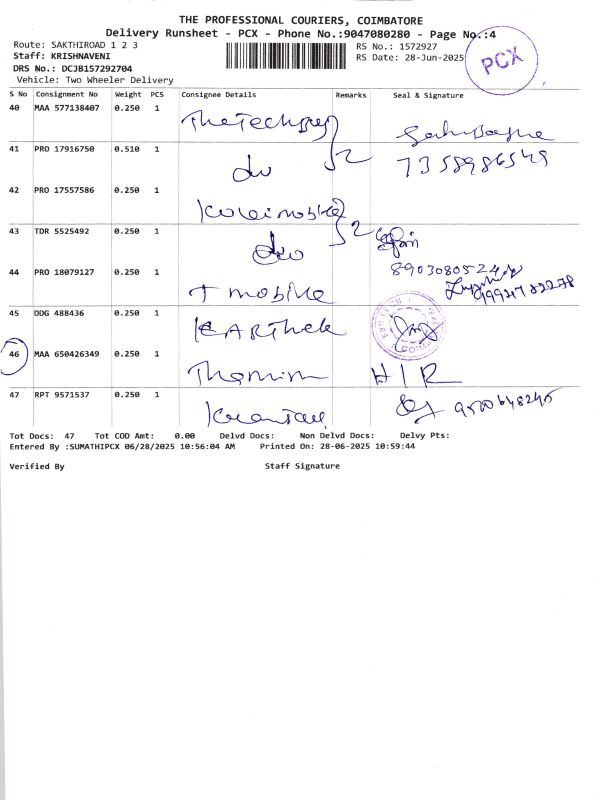 THE PROFESSIONAL COURIERS, COIMBATORE
Delivery Runsheet - PCX - Phone No.:9047080280 - Page No.:4
Route: SAKTHIROAD 1 2 3
RS No.: 1572927
Staff: KRISHNAVENI
RS Date: 28-Jun-2025
PCX
DRS No.: DCJB157292704
Vehicle: Two Wheeler Delivery
S No Consignment No Weight PCS Consignee Details Remarks Seal & Signature
40 MAA 577138407 0.250 1
41 PRO 17916750 0.510 1 do 2 7358986549
42 PRO 17557586 0.250 1
43 TDR 5525492 0.250 1 do 2
44 PRO 18079127 0.250 1 T mobile
45 DDG 488436 0.250 1
46 MAA 650426349 0.250 1
47 RPT 9571537 0.250 1
Tot Docs: 47 Tot COD Amt: 0.00 Delvd Docs: Non Delvd Docs: Delvy Pts:
Entered By :SUMATHIPCX 06/28/2025 10:56:04 AM Printed On: 28-06-2025 10:59:44
Verified By Staff Signature